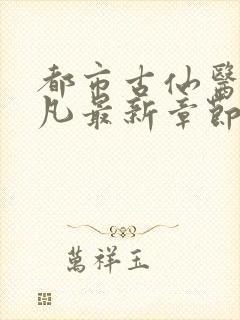 都市古仙醫
凡最新章節
萬祥玉